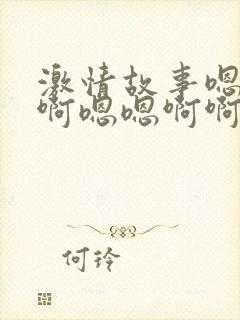 激情故事嗯
啊嗯嗯啊啊
何玲